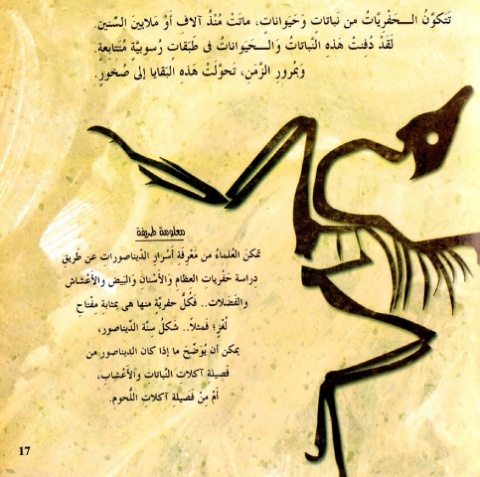 تَتَكوَّنُ الــحَفريَّاتُ من نَباتات وَحَيَوانات، ماتَتْ مُنْذُ آلاف أَوْ مَلايين السِّنين.
لَقَدْ دُفنتْ هَذه النَّباتاتُ وَالــحَيَواناتُ فى طَبَقات رُسوبيَّةٍ مُتَتابعةٍ.
وَبمُرورِ الزَّمَنِ، تَحوَّلَتْ هَذه البَقايا إلى صُخورٍ.
معلومة طريفة
تمكنَ العُلماءُ من مَعْرفَة أَسْرارِ الدِّيناصورات عن طَريقِ
دِراسة حَفْريات العظام وَالأَسْنان وَالبَيض والأَعْشاش
والفَضَلات.. فَكُلُّ حفريَّة منها هى بمثابة مِفْتاحِ
لُغْزٍ؛ فَمثلاً.. شَكلُ سِنَّة الدِّيناصور،
يمكن أن يُوَضِّحَ ما إذا كان الديناصور من
فَصيلة آكلات النَّباتات والأَعْشاب،
أَمْ مِنْ فَصيلة آكلات اللُّحوم.
17